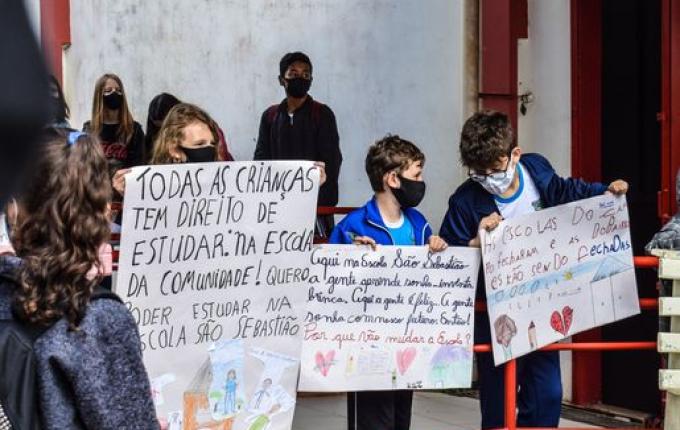 TODAS AS CRIANÇAS
TEM DIREITO DE
ESTUDAR NA ESCOLA
DA COMUNIDADE! QUERO
PODER ESTUDAR NA
ESCOLA SÃO SEBASTIÃO
Aqui na Escola São Sebastião
a gente aprende sonha, inventa
brinca. Aqui a gente é feliz. A gente
sonha com nosso futuro. Então!
Por que não mudar a Escola?
AS ESCOLAS DO
FECHARAM E AS
ESTÃO SENDO fechadas